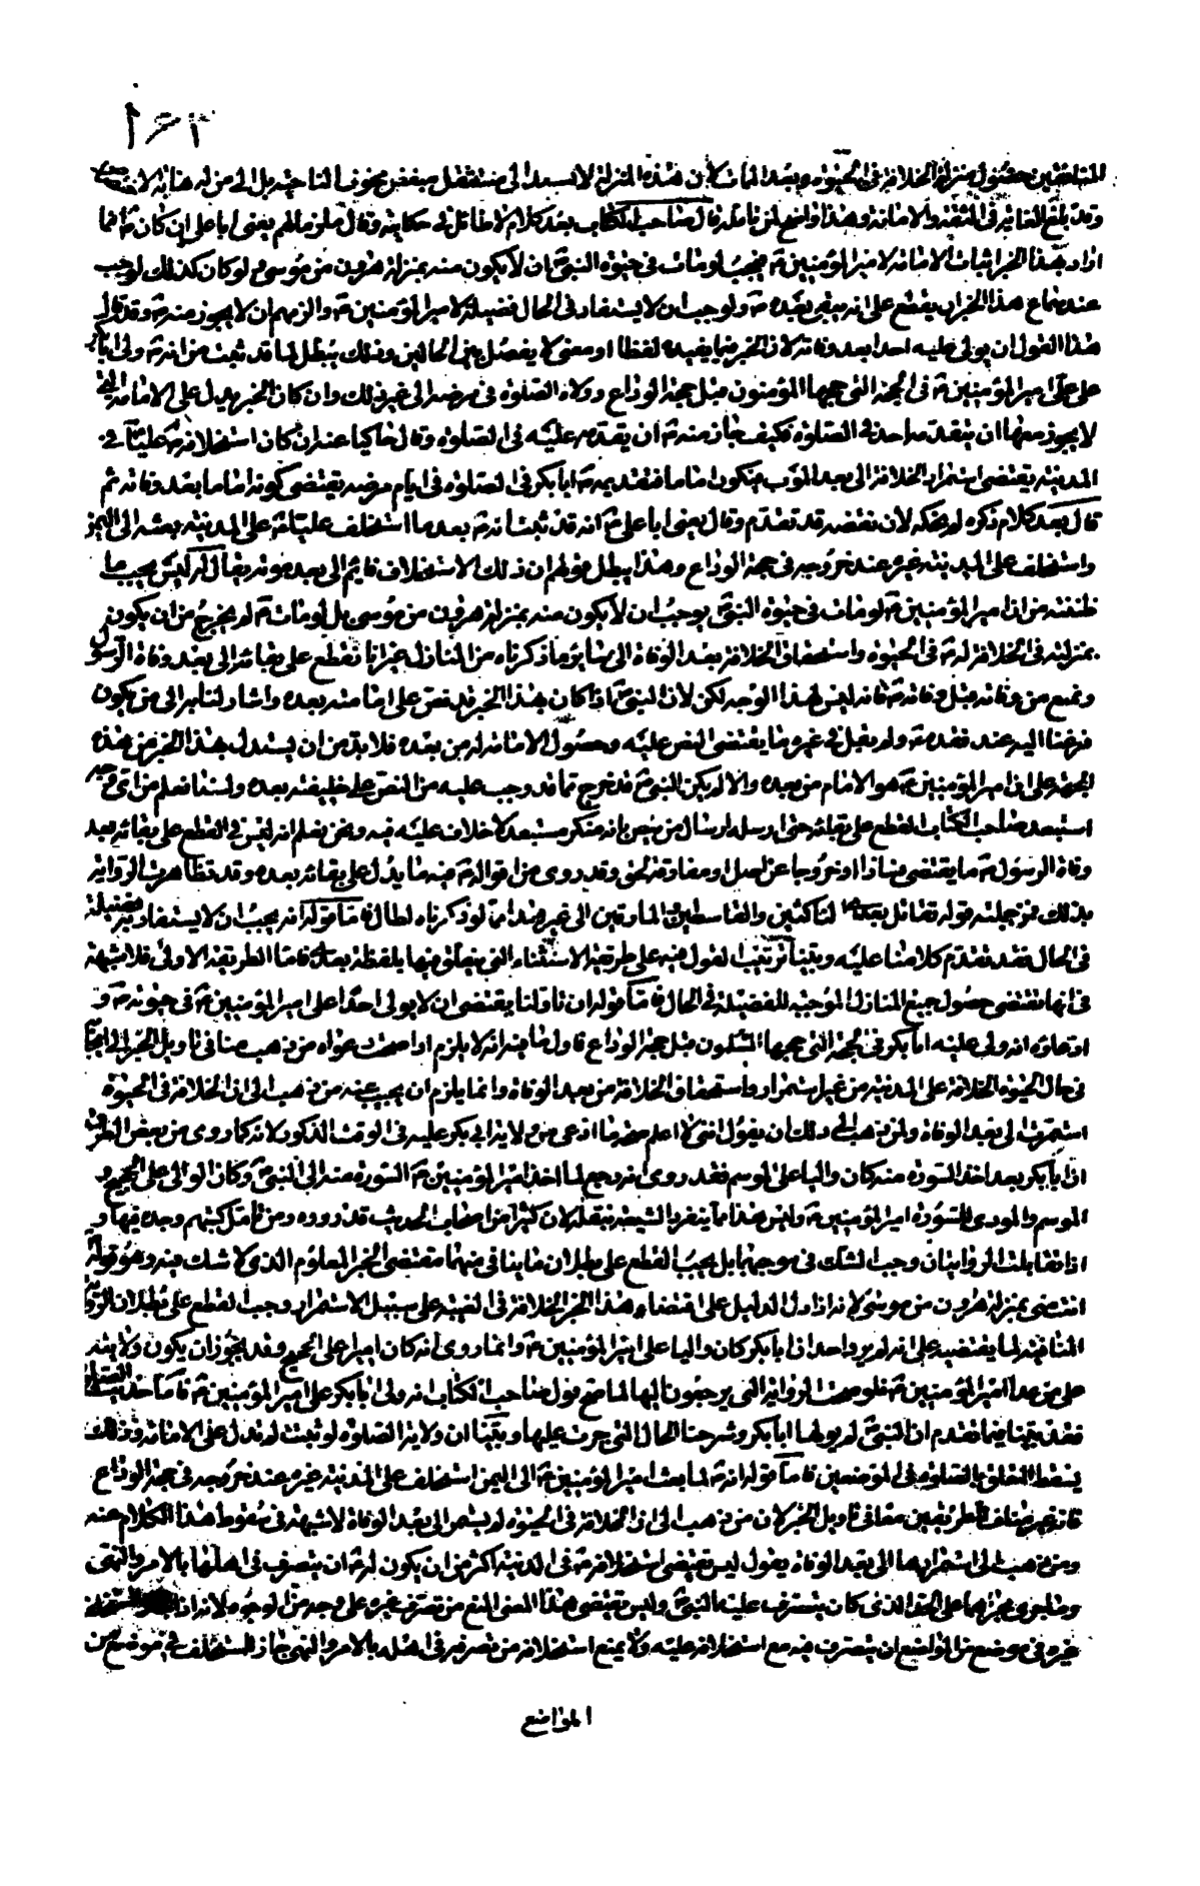 ١٦٣
المنافقين حصول منزلة الخلافة في الحيوة وبعد الممات لأن هذه المنزلة لا يستبعد الى مستثقل مبغض مخوف الناحية بل الى من له نهاية الاختصاص
وقد بلغ الغاية في الثقة والامانة وهذا واضح لمن تأمله قال صاحب الكتاب بعد كلام لا طائل في حكايته وقال ملزما لهم يعنى ابا على ان كان ص انما
اراد بهذا الخبر اثبات الامامة لامير المؤمنين ع فيجب لو مات في حيوة النبي ص ان لا يكون منه بمنزلة هرون من موسى ولو كان كذلك لوجب
عند سماع هذا الخبر ان يقطع على انه يبقى بعده ص ولوجب ان لا يستفاد في الحال فضيلة لامير المؤمنين ع والزمهم ان لا يجوز منه ص وقد قال
هذا القول ان يولى عليه احدا بعد وفاته لان الخبر فيما يفيده لفظا او معنى لا يفصل بين الحالين وذلك يبطل لما قد ثبت من انه ص ولى ابا بكر
على امير المؤمنين ع في الحجة التي حجها المؤمنون قبل حجة الوداع وولاه الصلوة في مرضه الى غير ذلك وان كان الخبر يدل على الامامة التي
لا يجوز معها ان يتقدمه احد في الصلوة فكيف جاز منه ص ان يقدم عليه في الصلوة وقال حاكيا عنه ان كان استخلافه ص عليا ع في
المدينة يقتضى استمرار الخلافة الى بعد الموت فيكون اماما فتقديمه ص ابا بكر في الصلوة في ايام مرضه يقتضى كونه اماما بعد وفاته ثم
قال بعد كلام ذكره لم نحكه لأن نقضه قد تقدم وقال يعنى ابا على ع انه قد ثبت انه ص بعد ما استخلف عليا ع على المدينة بعثه الى اليمن
واستخلف على المدينة غيره عند خروجه في حجة الوداع وهذا يبطل قولهم ان ذلك الاستخلاف قائم الى بعد موته يقال له ليس يجب ما
ظننته من ان امير المؤمنين ع لو مات في حيوة النبي ص يوجب ان لا يكون منه بمنزلة هرون من موسى بل لو مات ع لم يخرج من ان يكون
بمنزلته في الخلافة له ص في الحيوة واستحقاق الخلافة بعد الوفاة الى سائر ما ذكرناه من المنازل غير انا نقطع على بقائه الى بعد وفاة الرسول
ونمنع من وفاته قبل وفاته ص فانه ليس لهذا الوجه لكن لأن النبي ص اذا كان بهذا الخبر قد نص على امامته بعده واشار لنا به الى من يكون
فزعنا اليه عند فقده ص ولم يقل في غيره ما يقتضى النص عليه وحصول الامامة له من بعده فلا بد من ان يستدل بهذا الخبر من هذه
الجهة على ان امير المؤمنين ع هو الامام من بعده والا لم يكن النبي ص قد خرج مما قد وجب عليه من النص على خليفته بعده ولسنا نعلم من اى وجه
استبعد صاحب الكتاب القطع على بقائه حتى ارسله ارسال من يحتج بانه متنكر مستبعد لا خلاف عليه فيه ونحن نعلم انه ليس في القطع على بقائه بعد
وفاة الرسول ص ما يقتضى فسادا او خروجا عن اصل او مفارقة لحق وقد روى من اقواله ص فيه ما يدل على بقائه بعده وقد تظاهرت الرواية
بذلك فمن جملته قوله تقاتل بعدى الناكثين والقاسطين والمارقين الى غير هذا مما لو ذكرناه لطال فاما قوله انه يجب ان لا يستفاد به فضيلة
في الحال فقد تقدم كلامنا عليه وبينا ترتيب القول فيه على طريقة الاستثناء التي يتعلق فيها بلفظة بعدى فاما الطريقة الاولى فلا شبهة
في انها تقتضى حصول جميع المنازل الموجبة للفضيلة في الحال فاما قوله ان تأولنا يقتضى ان لا يولى احدا على امير المؤمنين ع في حيوته ص و
ادعاؤه انه ولى عليه ابا بكر في الحجة التي حجها المسلمون قبل حجة الوداع فاول ما فيه انه لا يلزم اذا صحت دعواه من ذهب منا في تأويل الخبر الى ايجابه
في حال الحيوة الخلافة على المدينة من غير استمرار واستحقاق الخلافة من بعد الوفاة وانما يلزم ان يجيب عنه من ذهب الى ان الخلافة في الحيوة
استمرت الى بعد الوفاة ولمن ذهب الى ذلك ان يقول انني لا اعلم صحة ما ادعى من ولاية ابي بكر عليه في الوقت المذكور لانه كما روى من بعض الطرق
ان ابا بكر بعد اخذ السورة منه كان واليا على الموسم فقد روى انه رجع لما اخذ امير المؤمنين ع السورة منه الى النبي ص وكان الوالى على الحجيج و
الموسم والمودى للسورة امير المؤمنين ع وليس هذا مما ينفرد الشيعة بنقله لان كثيرا من اصحاب الحديث قد رووه ومن تأمل كتبهم وجده فيها و
اذا تقابلت الروايتان وجب الشك في موجبهما بل يجب القطع على بطلان ما ينافي منهما مقتضى الخبر المعلوم الذي لا شك فيه وهو قوله
انت منى بمنزلة هرون من موسى لانه اذا دل الدليل على اقتضاء هذا الخبر الخلافة في الغيبة على سبيل الاستمرار وجب القطع على بطلان الرواية
المنافية لما يقتضيه على انه لم يرو احد ان ابا بكر كان واليا على امير المؤمنين ع وانما روى انه كان اميرا على الحجيج وقد يجوز ان يكون ولايته
على من عدا امير المؤمنين ع فلو صحت الرواية التي يرجعون اليها لما صح قول صاحب الكتاب انه ولى ابا بكر على امير المؤمنين ع فاما حديث الصلوة
فقد بينا فيما تقدم ان النبي ص لم يولها ابا بكر وشرحنا الحال التي جرت عليها وبينا ان ولاية الصلوة لو ثبت لم تدل على الامامة وذلك
يسقط التعلق بالصلوة في الموضعين فاما قوله انه ص لما بعث امير المؤمنين ع الى اليمن استخلف على المدينة غيره عند خروجه في حجة الوداع
فانه غير مناف لطريقتين معا في تأويل الخبر لان من ذهب الى ان الخلافة في الحيوة لم يستمر الى بعد الوفاة لا شبهة في سقوط هذا الكلام عنه
ومن ذهب الى استمرارها الى بعد الوفاة يقول ليس تقتضى استخلافه ص في المدينة اكثر من ان يكون له ع ان يتصرف في اهلها بالامر والنهى
وما يجرى مجراهما على الحد الذي كان يتصرف عليه النبي ص وليس تقتضى هذا المعنى المنع من تصرف غيره على وجه من الوجوه لانه اذا جاز للمستخلف
غيره في موضع من المواضع ان يتصرف فيه مع استخلافه عليه ولا يمنع استخلافه من تصرفه في اهله بالامر والنهى جاز للمستخلف في موضع من
المواضع